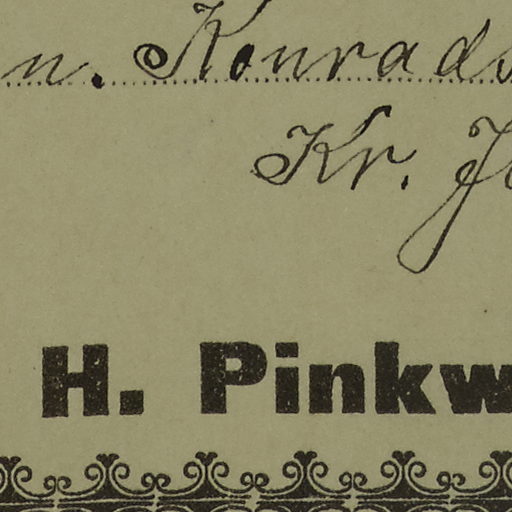 n. Konrads
Kr. J
H. Pinkw